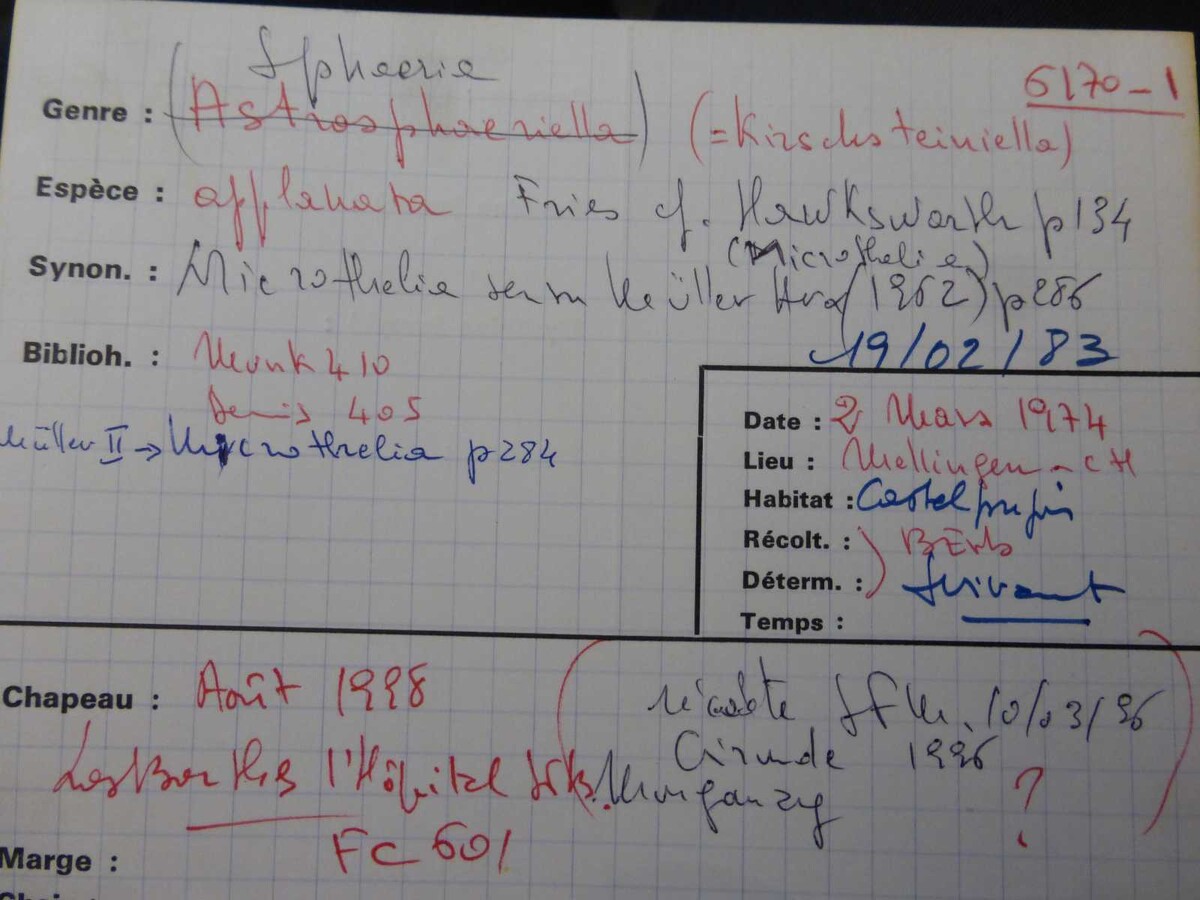 Sphaeria
6170-1
Genre : (Astrosphaeriella) (=Kirschsteiniella)
Espèce : applanata Fries cf. Hawksworth p134
(Microthelia)
Synon. : Microthelia sensu Müller Arx (1962) p286
19/02/83
Biblioh. : Munk 410
Denis 405
Müller II → Microthelia p284
Date : 2 Mars 1974
Lieu : Mellingen - CH
Habitat :
Récolt. :
Déterm. : suivant
Temps :
Chapeau : Août 1998
récolte 10/03/96
Gironde 1996
l'Hôpital
?
FC 601
Marge :